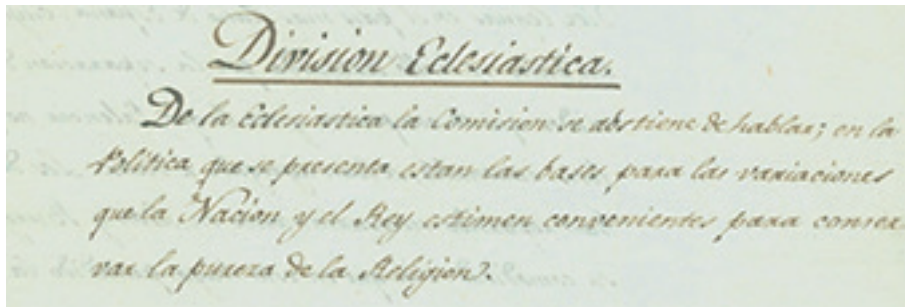 Division Eclesiastica.
De la Eclesiastica la Comision se abstiene de hablar; en la
Politica que se presenta estan las bases para las variaciones
que la Nacion y el Rey estimen convenientes para conser-
var la pureza de la Religion.